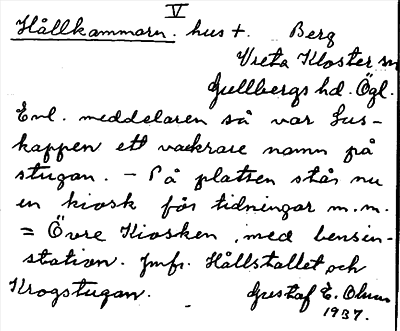 V
Hållkammarn. hus +. Berg
Vreta Kloster sn
Gullbergs hd. Ögl.
Enl. meddelaren så var Lus-
kappen ett vackrare namn på
stugan. - På platsen står nu
en kiosk för tidningar m.m.
= Övre Kiosken, med bensin-
station. Jmfr. Hållstallet och
Krogstugan. Gustaf E. Olsson
1937.